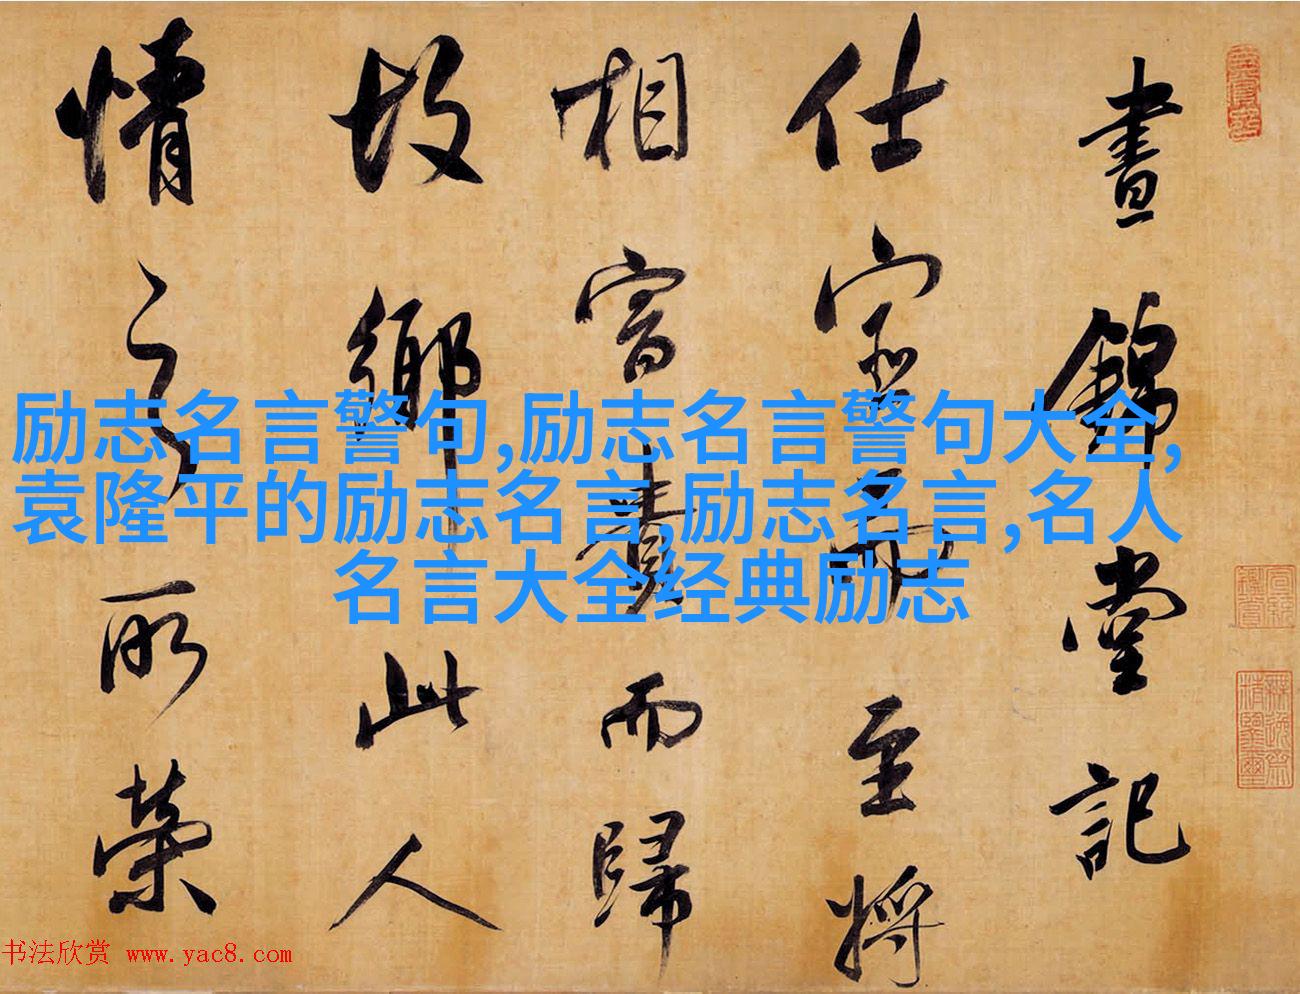 晝錦堂記
仕宦而至將
相富貴而歸
故鄉此人
情之所榮
励志名言警句,励志名言警句大全,
袁隆平的励志名言,励志名言,名人
名言大全经典励志
书法欣赏 www.yac8.com